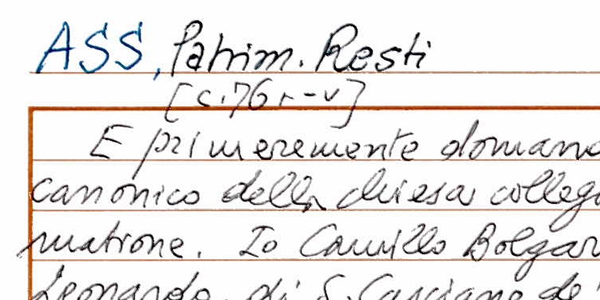 ASS, Patrim. Resti
[c.76 r-v]
E primeremente domand
canonico della chiesa colleg
matrone. Io Camillo Bolgar
Leonardo di S. Casciano de'